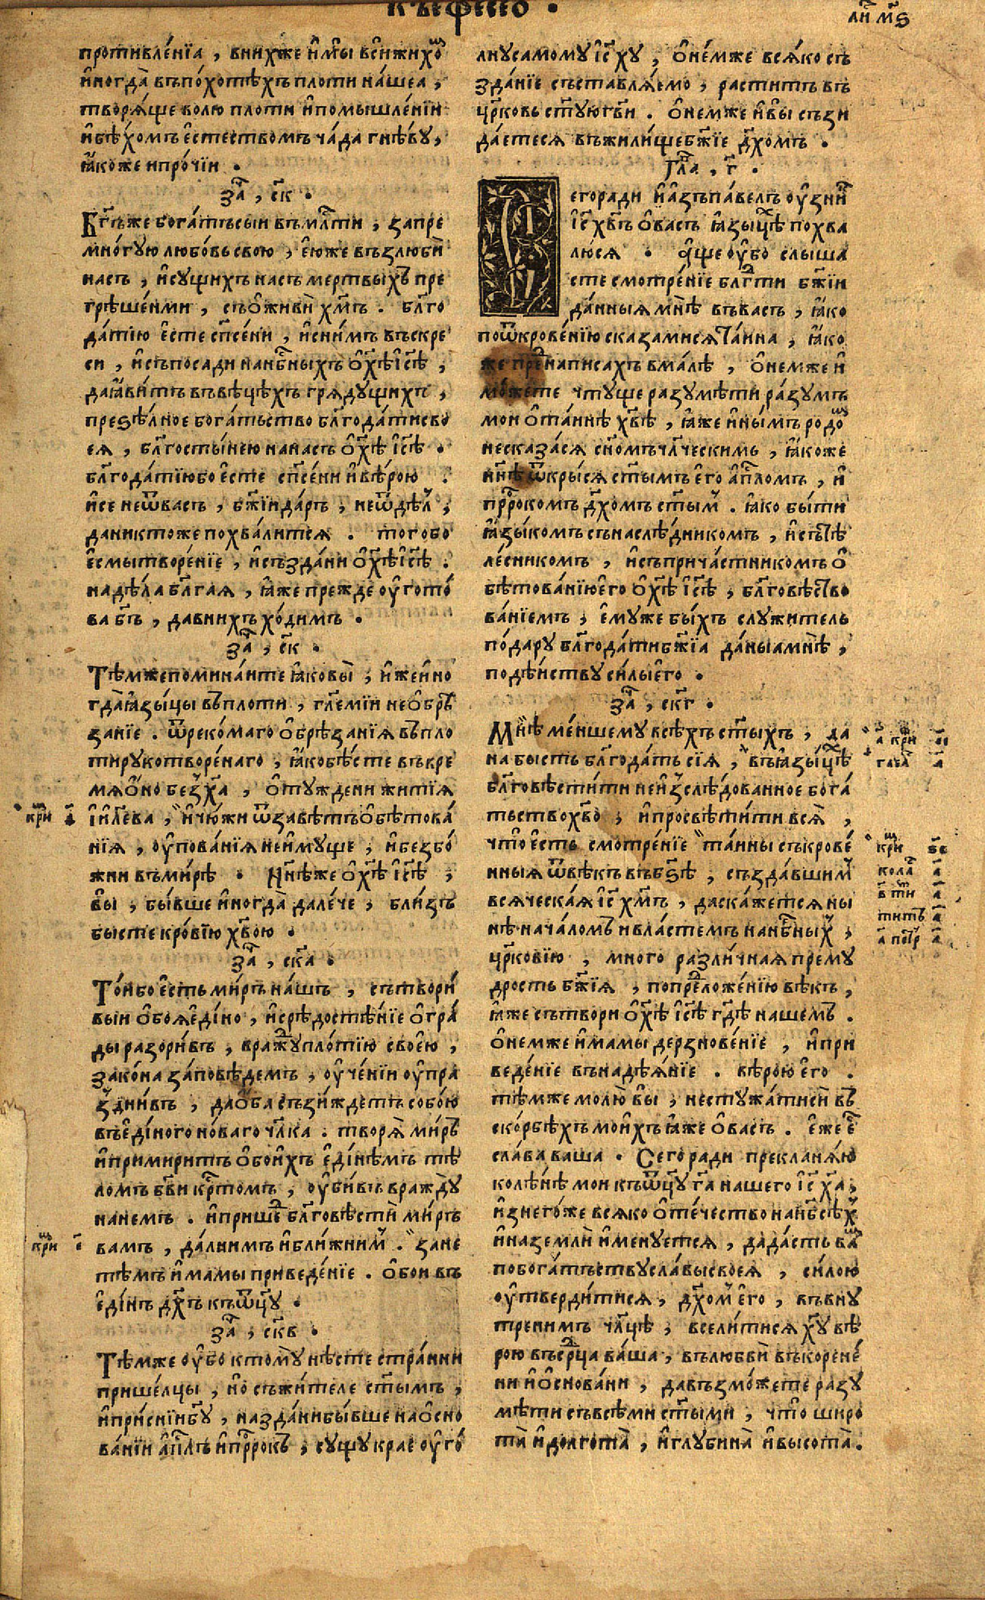 къефесео .
ли҃ м҃ѕ
противле́нїа , внихже и҆мы̀ вси́жихоⷨ
и҆ногда̀ въпо́хотѣхъ плоти на́шеа ,
творѧ́ще волю плоти и҆помышле́нїи
и҆бѣ́хомъ е҆стествомъ ча́да гнѣ́ву ,
ꙗ҆́коже ипро́чїи .
заⷱ҇ , с҃к .
Бг҃ъже бога́тъсыи въмлⷭ҇ти , запре
мно́гую любо́вь свою , е҆юже възлюбѝ
насъ , и҆сущихъ насъ мертвыхъ пре
грѣше́нми , съѡ҆живѝ хм҃ъ . блг҃о
да́тїю е҆сте сп҃се́ни , и҆сни́мъ въскре
си , и҆съпосадѝ нанбⷭ҇ныхъ ѡ҆хѣ҃ і҆с҃ѣ ,
даꙗ҆ви́тъ въвѣцѣхъ грѧду́щихъ ,
преѕѣ́лное бога́тьство блг҃ода́тисво
еѧ̀ , блг҃осты́нею нанасъ ѡ҆хѣ҃ і҆с҃ѣ .
блг҃ода́тїюбо е҆сте сп҃се́ни и҆вѣ́рою .
и҆се неѿва́съ , бж҃їидаръ , неѿдѣ́лъ ,
даниктоже похва́литсѧ . того́бо
е҆смытворе́нїе , и҆създа́ни ѡ҆хѣ҃і҆с҃ѣ .
надѣ́ла бл҃га́ѧ , ꙗ҆́же прежде оу҆гото́
ва бг҃ъ , давнихъ хо́димъ .
заⷱ҇ , с҃к .
Тѣ́мжепомина́ите ꙗ҆ковы̀ , и҆же и҆но
гда̀ꙗ҆зы́цы въпло́ти , гл҃емїи необрѣ́
занїе . ѿреко́маго ѡ҆брѣ́занїа въпло
тирукотворе́наго , ꙗ҆кобѣ́сте въвре
мѧѻ҆́но безх҃а , ѡ҆тужде́ни житїѧ
і҆и҃лева , и҆чю́жи ѿзавѣ́тъѡ҆бѣтова́
нїѧ , оу҆пова́нїѧ неи҆му́ще , и҆безбо́
жни въмирѣ . Нн҃ѣже ѡ҆хѣ҃ і҆с҃ѣ ,
вы̀ , бы́вше и҆ногда̀ дале́че , бли́зъ
бысте кро́вїю хв҃ою .
заⷱ҇ , с҃ка .
То́ибо е҆стъ ми́ръ нашъ , сътвори́
выи ѻ҆боѧ̀ е҆ди́но , и҆сре́достѣнїе ѡ҆гра́
ды разори́въ , вражⷣу пло́тїю свое́ю ,
зако́на за́повѣдемъ , оу҆че́нїи оу҆пра
зднивъ , даѻ҆́ба съзи́ждетъ собо́ю
въе҆ди́ного но́ваго чл҃ка . творѧ̀ ми́ръ
и҆примири́тъ ѻ҆бои́хъ е҆ди́нѣмъ тѣ
ломъ бг҃ви крⷭ҇томъ , оу҆би́въ вражду
нанемъ . и҆прише́дъ блг҃овѣсти́ ми́ръ
вамъ , да́лнимъ и҆бли́жнимъ . зане
тѣ́мъ и҆́мамы приведе́нїе . ѻ҆бои въ
е҆ди́нъ дх҃ъ къѿц҃у .
заⷱ҇ , с҃кв .
Тѣ́мже оу҆́бо ктомꙋ̀ нѣ́сте стра́нни
прише́лцы , но̀ съжи́теле ст҃ымъ ,
и҆при́снїибг҃у , назда́нибы́вше наѡ҆сно
ва́нїи а҆пⷭ҇лъ и҆прⷪ҇рокъ , сущу крае оу҆го́
лнусамому і҆с҃ ху , ѡ҆не́мже всѧ́ко съ
зда́нїе съставлѧ́емо , расти́тъ въ
цр҃ковь ст҃уюгв҃и . ѡ҆немже и҆вы́ съзи
да́етесѧ въжили́щебж҃їе дх҃омъ .
гла҃ , г҃ .
Сегоради и҆а҆зъпа́велъ оу҆́зни
і҆с҃ хв҃ъ ѡ҆ва́съ ꙗ҆зы́цѣ похва
лю́сѧ . а҆ще оу҆́бо слы́ша
сте смотре́нїе блг҃ти бж҃їи
да́нныѧ мнѣ̀ въва́съ , ꙗ҆ко
поѿкрове́нїю сказамисѧ та́ина , ꙗ҆ко
же пре́написахъ вма́лѣ , ѡ҆немже и҆
мо́жете чтуще разумѣ́ти ра́зумъ
мои ѡ҆та́инѣ хв҃ѣ , ꙗ҆́же и҆ны́мъ родоⷨ
несказа́сѧ сномъчл҃ческимъ , ꙗ҆коже
нн҃ѣ ѿкры́сѧ ст҃ымъ е҆го̀ а҆пⷭ҇ломъ , и҆
прⷪ҇рокомъ дх҃омъ ст҃ымъ . ꙗ҆ко бы́ти
ꙗ҆зы́комъ сънаслѣ́дникомъ , и҆сътѣ
ле́сникомъ , и҆съприча́стникомъ ѡ҆
бѣтова́нїюе҆го̀ ѡ҆хѣ҃ і҆с҃ѣ , блг҃овѣ́ство
ва́нїемъ , е҆муже бы́хъ служи́тель
пода́ру блг҃ода́тибж҃їа да́ныамнѣ̀ ,
подѣ́иству си́лыего̀ .
заⷱ҇ , с҃кг .
Мнѣ̀ ме́ншему всѣ́хъ ст҃ыхъ , да
на бысть блг҃ода́ть сїѧ̀ , въꙗ҆зы́цѣ
блг҃овѣсти́ти неи҆зслѣ́дованное бога́
тьствохв҃о , и҆просвѣти́ти всѧ̀ ,
что̀ е҆сть смотре́нїе та́ины съкрове́
нныѧ ѿвѣ́къ въбз҃ѣ , създа́вшимъ
всѧ́ческаѧ і҆с҃ хм҃ъ , даска́жетсѧ ны
нѣ нача́ломъ и҆вла́стемъ нанбⷭ҇ныхъ ,
цр҃ковїю , много разли́чнаѧ прему
дрость бж҃їѧ , попреⷣложе́нїю вѣ́къ ,
ꙗ҆́же сътвори ѡ҆хѣ҃ і҆с҃ѣ гдⷭ҇ѣ нашемъ .
ѡ҆немже и҆мамы дерзнове́нїе , и҆при
веде́нїе внадѣѧ́нїе . вѣ́рою е҆го̀ .
тѣ́мже молю̀ вы̀ , нестужа́тисѝ въ
ско́рбѣхъ мои́хъ ꙗ҆́же ѡ҆ва́съ . е҆же е҆́сть
сла́ва ваша . Сего́ради преклана́ю
колѣ́нѣ мои къѿц҃у гⷭ҇а нашего і҆с҃ ха҃ ,
и҆знего́же всѧко ѻ҆те́чество нанбⷭ҇сѣхъ
и҆наземли̂ и҆мену́етсѧ , дада́стъ ваⷨ
побога́тьствусла́высвоеѧ̀ , си́лою
оу҆тверди́тисѧ , дх҃омъ е҆го̀ , въвну́
тренимъ чл҃цѣ , всели́тисѧ ху҃ вѣ́
рою въсерⷣца ва́ша , вълюбвѝ въкорене́
ни и҆ѡ҆снова́ни , давъзмо́жете разу
мѣ́ти съвсѣми ст҃ы́ми , что̀ широ
та̀ и҆долгота̀ , и҆глубина̀ и҆высота̀ .